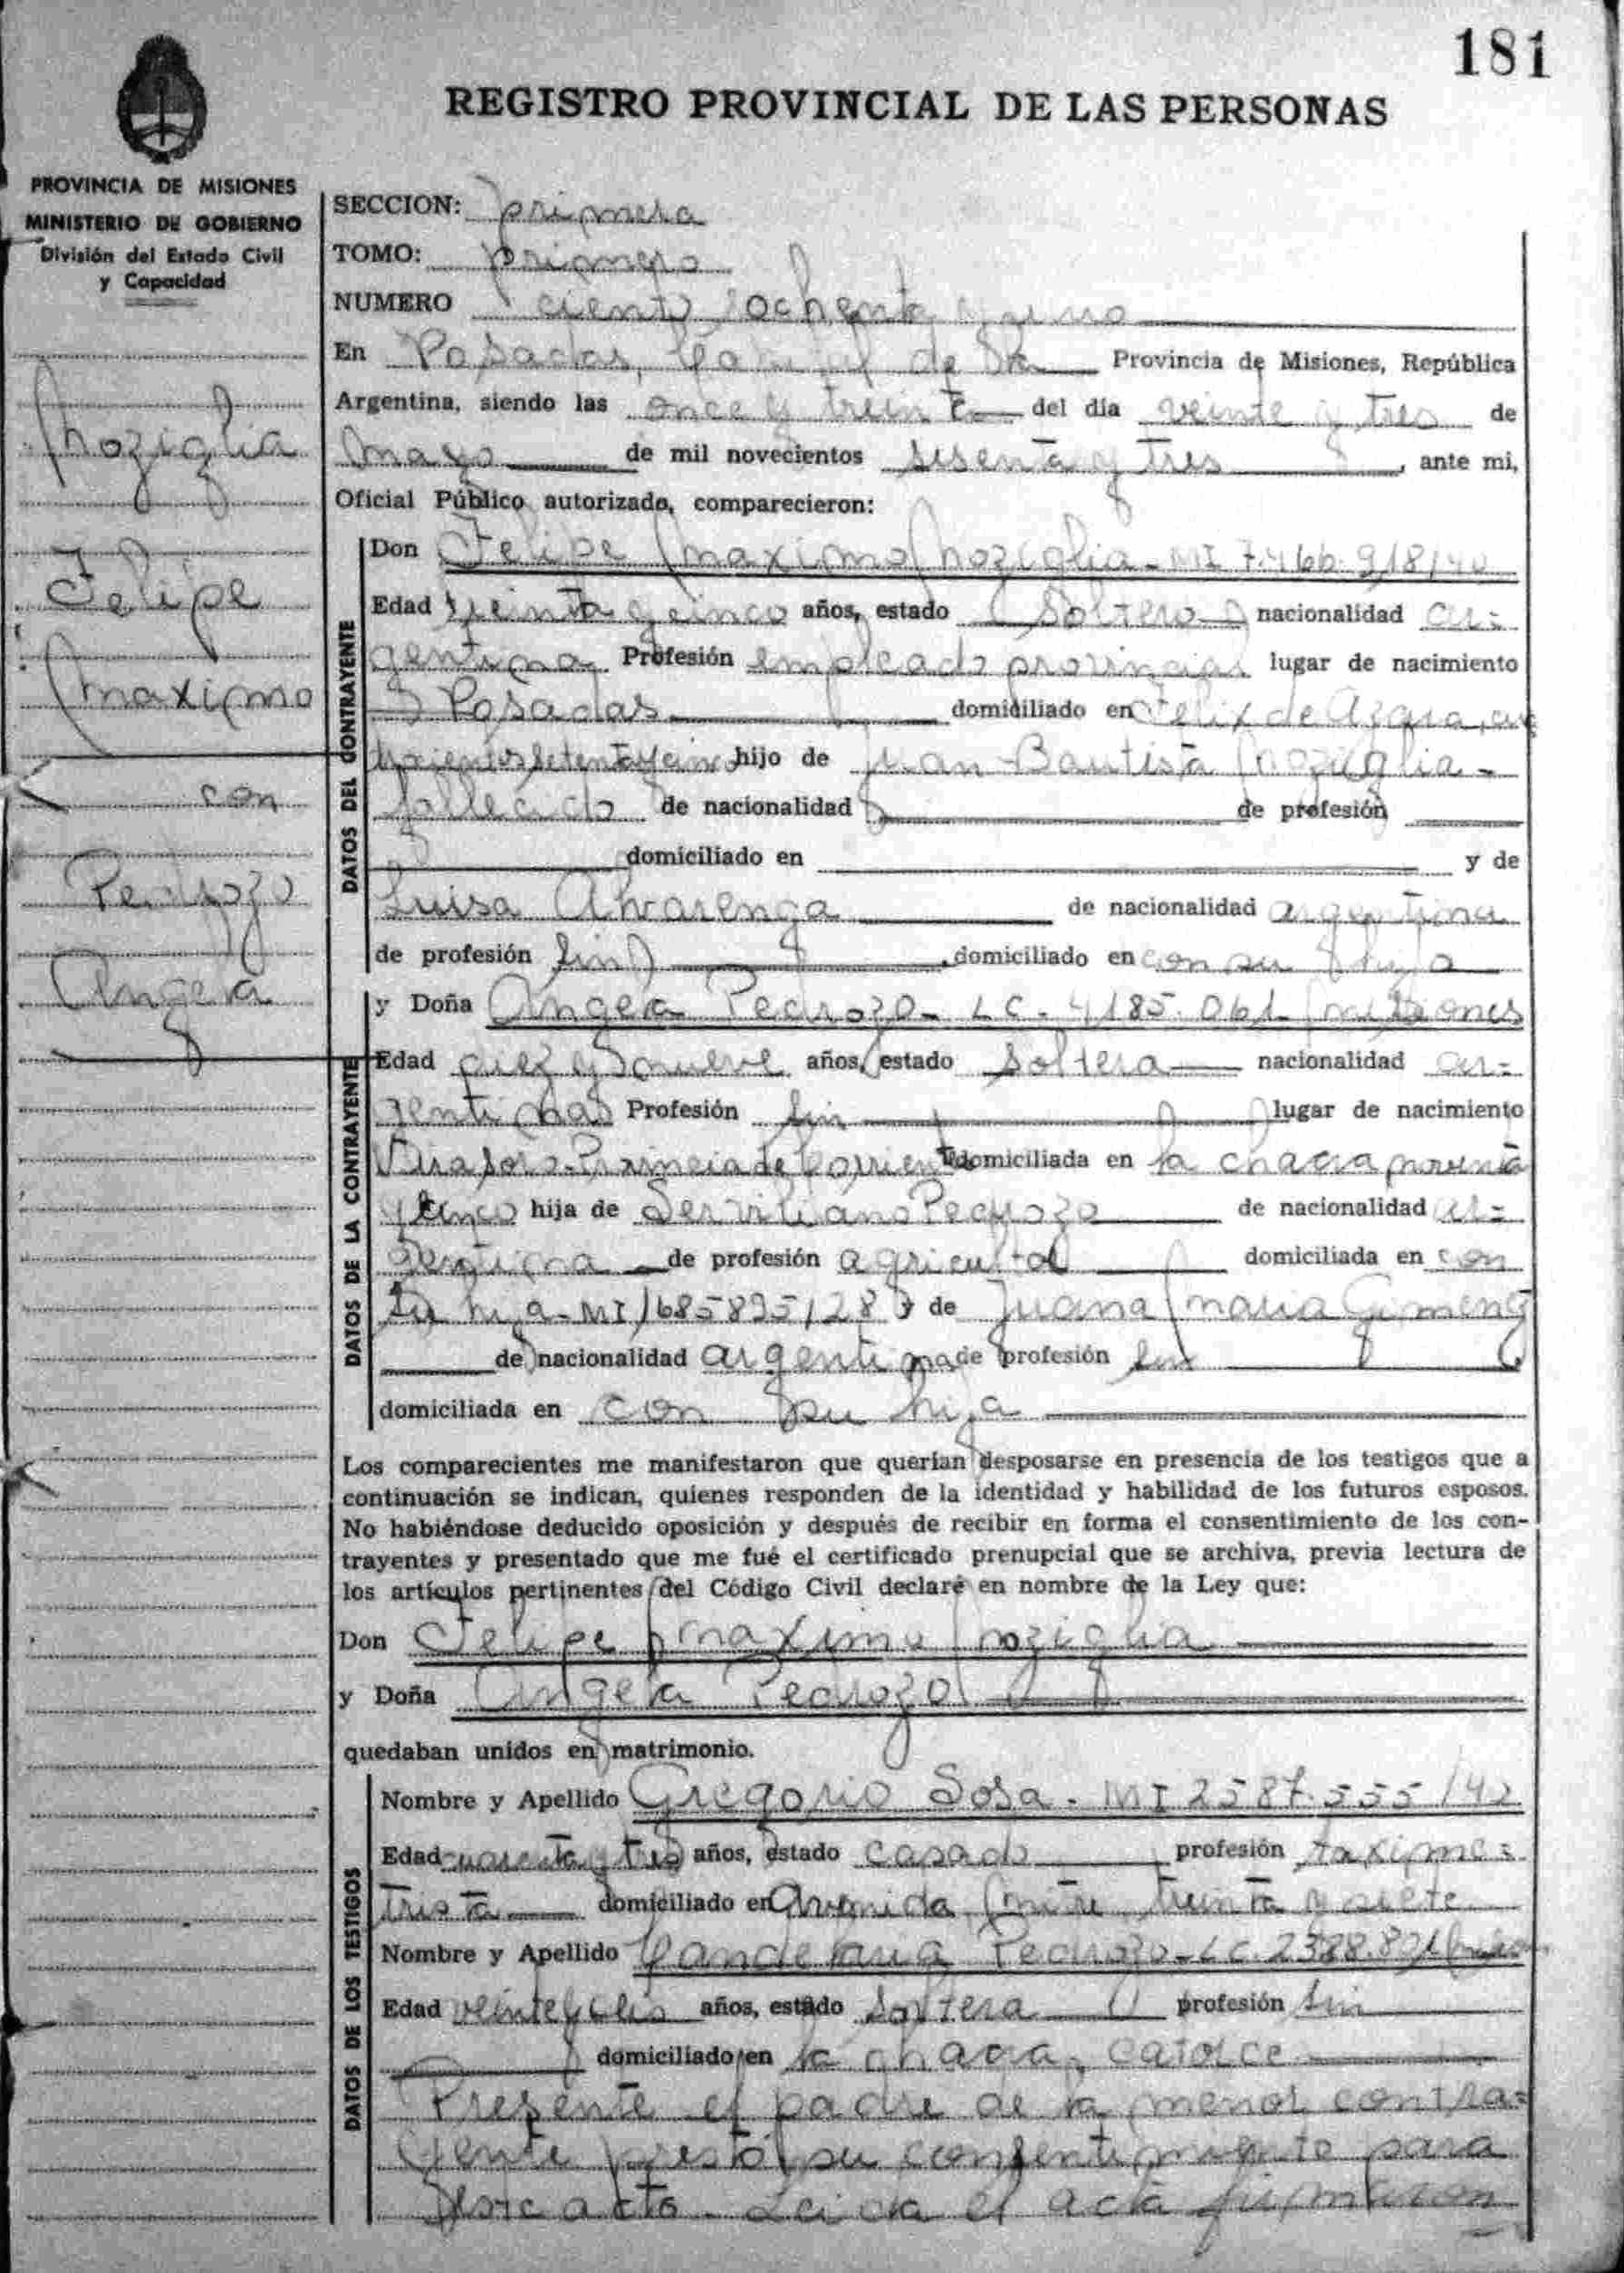 181
REGISTRO PROVINCIAL DE LAS PERSONAS
PROVINCIA DE MISIONES
MINISTERIO DE GOBIERNO
División del Estado Civil
y Capacidad
Moziglia
Felipe
Maximo
con
Pedrozo
Angela
SECCION: primera
TOMO: primero
NUMERO ciento ochenta y uno
En Posadas, Capital de la Provincia de Misiones, República
Argentina, siendo las once y treinta del día veinte y tres de
Mayo de mil novecientos sesenta y tres, ante mi,
Oficial Público autorizado, comparecieron:
DATOS DEL CONTRAYENTE
Don Felipe Maximo Moziglia - MI 7.466.918/40
Edad treinta y cinco años, estado soltero nacionalidad ar=
gentina Profesión empleado provincial lugar de nacimiento
Posadas domiciliado en Felix de Azara,
setenta y cinco hijo de Juan Bautista Moziglia -
fallecido de nacionalidad de profesión
domiciliado en y de
Luisa Alvarenga de nacionalidad argentina
de profesión sin domiciliado en con su hijo
DATOS DE LA CONTRAYENTE
y Doña Angela Pedrozo - LC. 4185.061 Misiones
Edad diez y nueve años, estado soltera nacionalidad ar=
gentina Profesión sin lugar de nacimiento
Virasoro - Provincia de Corrientes domiciliada en la chacra noventa
y cinco hija de Serviliano Pedrozo de nacionalidad ar=
gentina de profesión agricultor domiciliada en con
su hija - MI 1685895/28 y de Juana Maria Gimenez
de nacionalidad argentina de profesión sin
domiciliada en con su hija
Los comparecientes me manifestaron que querían desposarse en presencia de los testigos que a
continuación se indican, quienes responden de la identidad y habilidad de los futuros esposos.
No habiéndose deducido oposición y después de recibir en forma el consentimiento de los con-
trayentes y presentado que me fué el certificado prenupcial que se archiva, previa lectura de
los artículos pertinentes del Código Civil declaré en nombre de la Ley que:
Don Felipe Maximo Moziglia
y Doña Angela Pedrozo
quedaban unidos en matrimonio.
DATOS DE LOS TESTIGOS
Nombre y Apellido Gregorio Sosa - MI 2587.555/42
Edad cuarenta y tres años, estado casado profesión taxime=
trista domiciliado en Avenida Mitre treinta y siete
Nombre y Apellido Candelaria Pedrozo - LC. 2328.821
Edad veinte y seis años, estado soltera profesión sin
domiciliado en la chacra, catorce
Presente el padre de la menor contra=
yente prestó su consentimiento para
este acto - Leida el acta firmaron